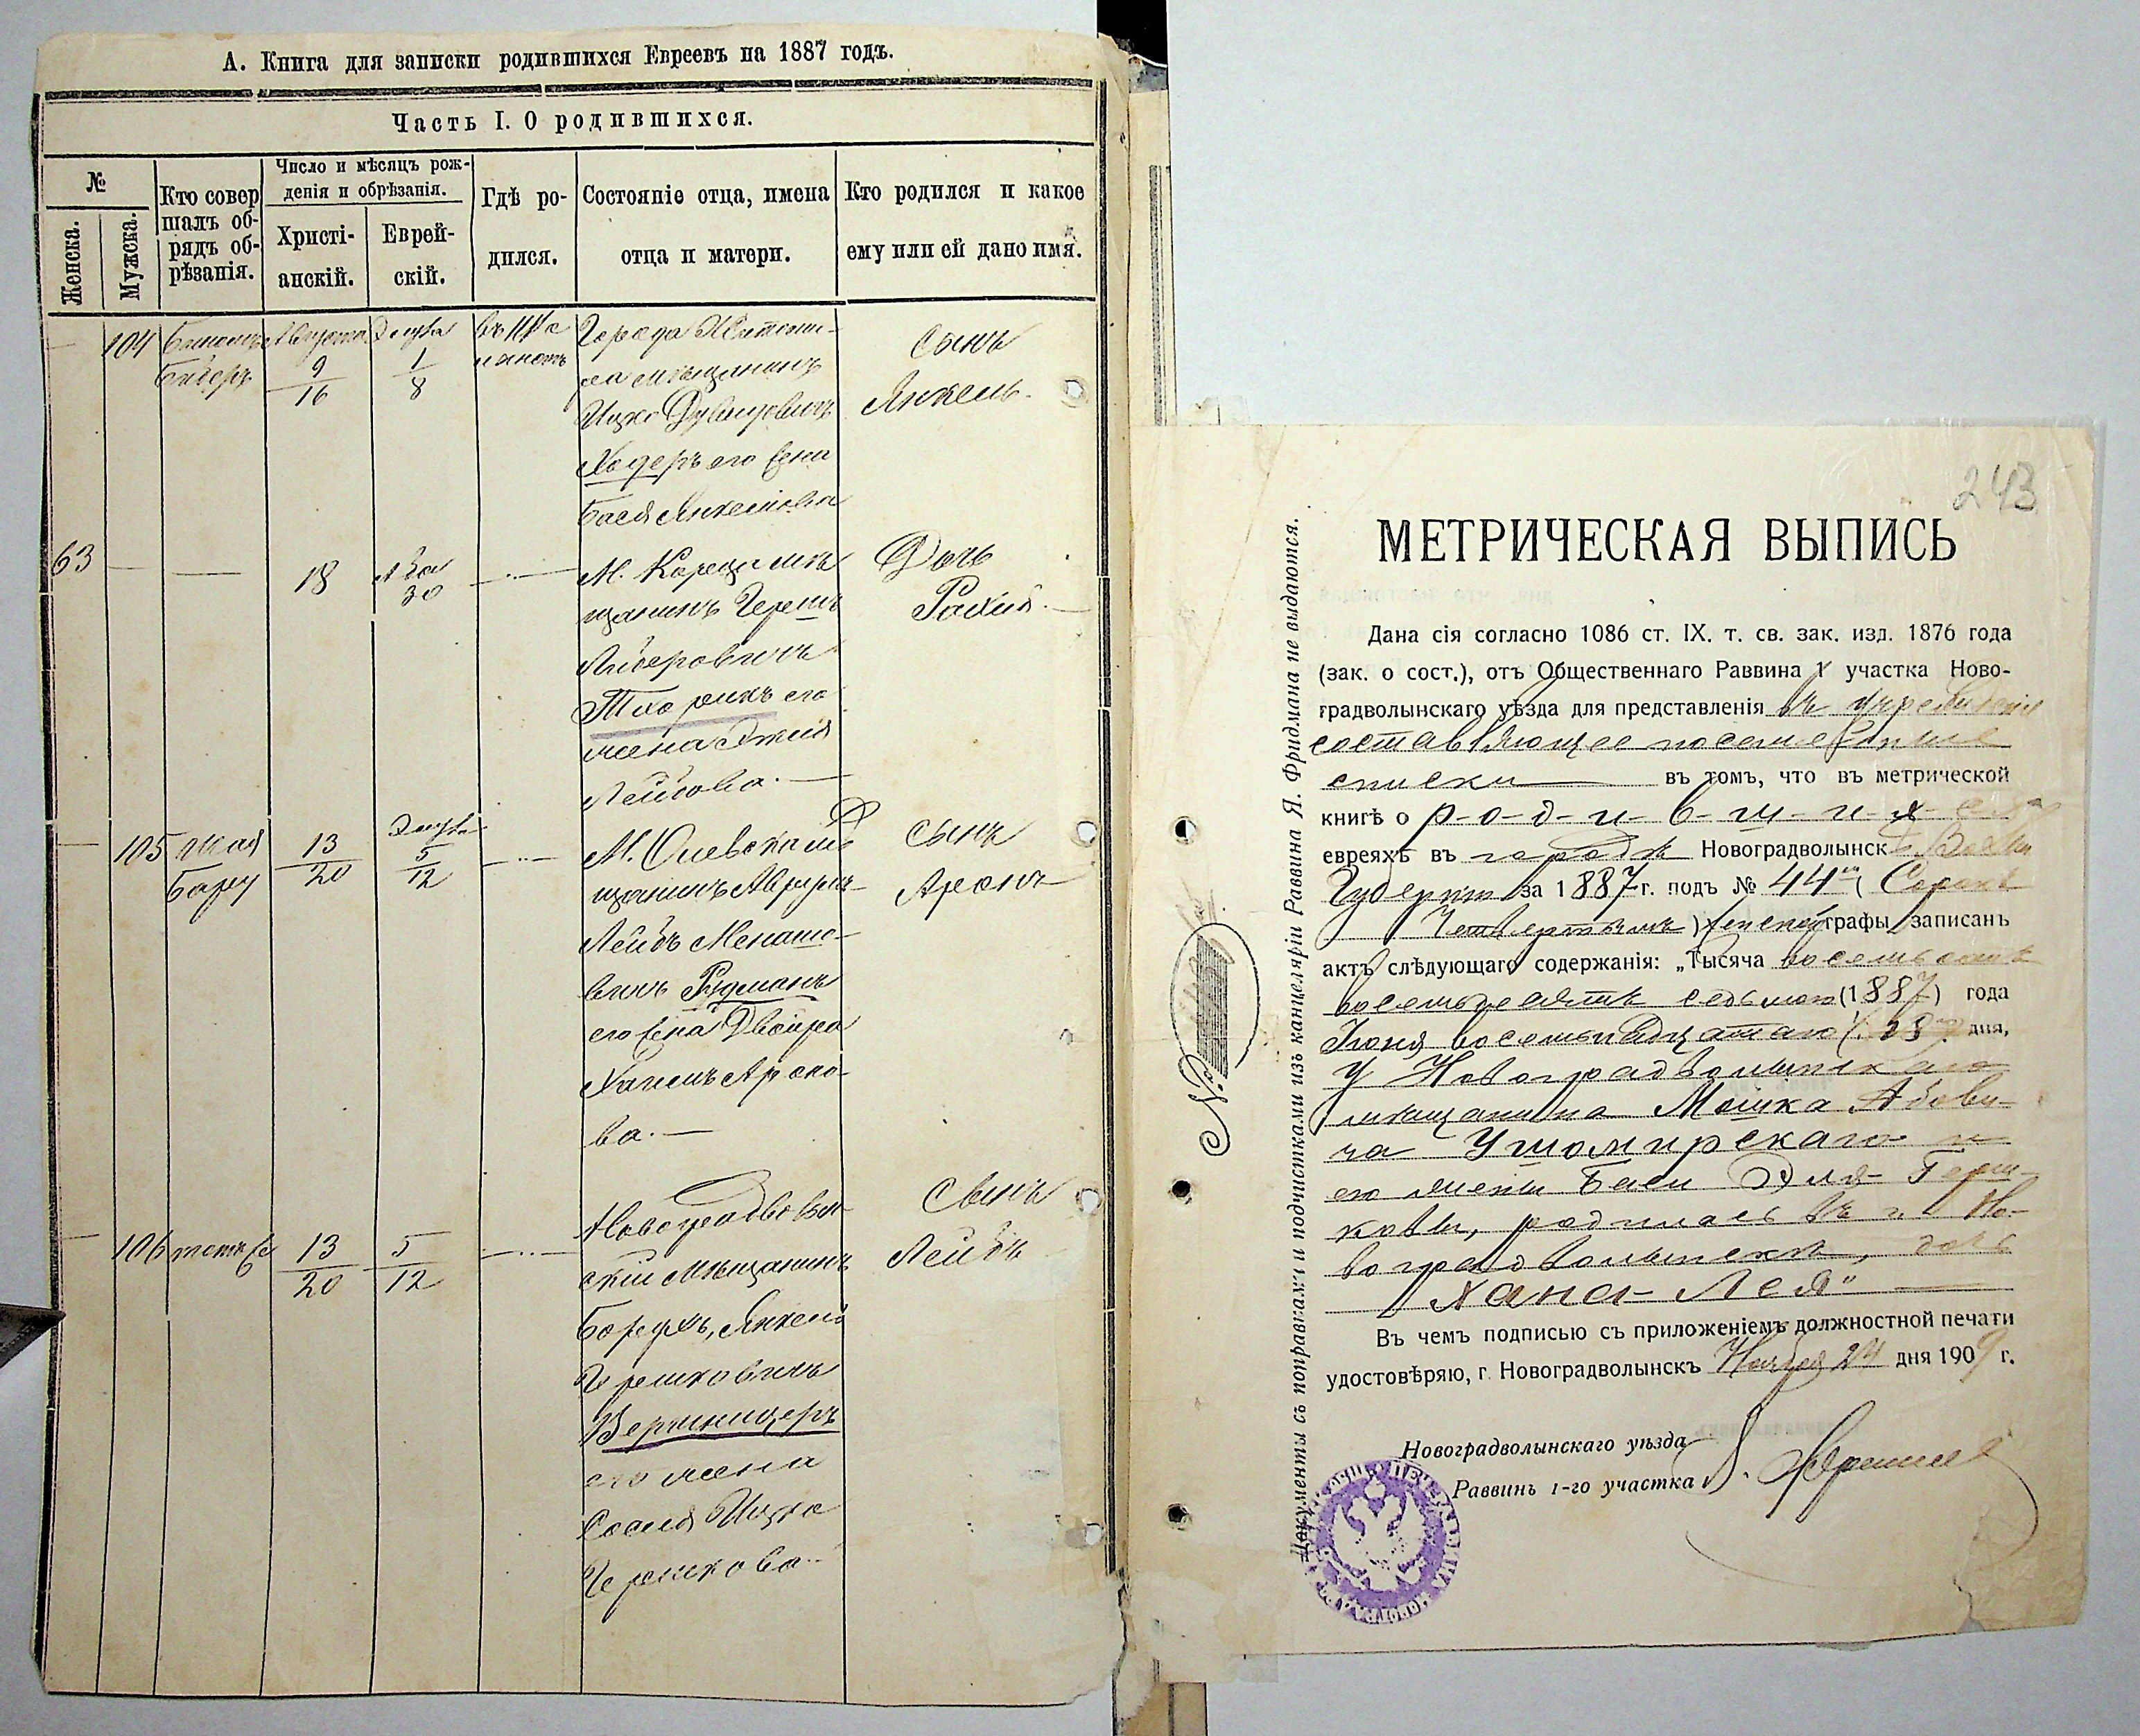 А. Книга для записки родившихся Евреевъ на 1887 годъ.
Часть I. О родившихся.
№
Женска.
Мужска.
Кто совер
шалъ об-
рядъ об-
рѣзанія.
Число и мѣсяцъ рож-
денія и обрѣзанія.
Христі-
анскій.
Еврей-
скій.
Гдѣ ро-
дился.
Состояніе отца, имена
отца и матери.
Кто родился и какое
ему или ей дано имя.
104
Августа
9
16
Элула
1
8
Города Житоми-
ра мѣщанинъ
Ицко Дувидовичъ
Ходеръ его жена
Бася Янкелова
Сынъ
Янкель.
63
18
Ава
30
М. Корца мѣ
щанинъ Гершъ
Лейзеровичъ
его
жена
Лейбова.
Дочь
Рахиль.
105
13
20
Элула
5
12
М. Олевска мѣ
щанинъ Аврумъ-
Лейбъ Менаше-
вичъ Фурманъ
его жена Двейра
Хаислъ Ароно-
ва.
Сынъ
Аронъ
106
тотъ же
13
20
5
12
Новоградволын-
скій мѣщанинъ
Борухъ, Янкель
Гершковичъ
его жена
Сося Ицко
Гершкова
Сынъ
Лейбъ
243
МЕТРИЧЕСКАЯ ВЫПИСЬ
Дана сія согласно 1086 ст. IX. т. св. зак. изд. 1876 года
(зак. о сост.), отъ Общественнаго Раввина 1 участка Ново-
градволынскаго уѣзда для представленія въ учрежденія
составляющее посемейные
списки въ томъ, что въ метрической
книгѣ о р-о-д-и-в-ш-и-х-ся
евреяхъ въ городѣ Новоградволынскѣ Волын
Губерніи за 1887 г. подъ № 44мъ (Сорокъ
Четвертымъ) женской графы записанъ
актъ слѣдующаго содержанія: „Тысяча восемьсотъ
восемьдесятъ седьмого (1887) года
Іюня восемнадцатаго (18) дня,
у Новоградволынскаго
мѣщанина Мошка Абови-
ча Ушомирскаго и
его жены Баси Эли Герш-
ковы, родилась въ г. Но-
воградволынскѣ, дочь
Хана-Лея"
Въ чемъ подписью съ приложеніемъ должностной печати
удостовѣряю, г. Новоградволынскъ Ноября 24 дня 1909 г.
Новоградволынскаго уѣзда
Раввинъ 1-го участка
Документы съ поправками и подчистками изъ канцеляріи Раввина Я. Фридмана не выдаются.
№